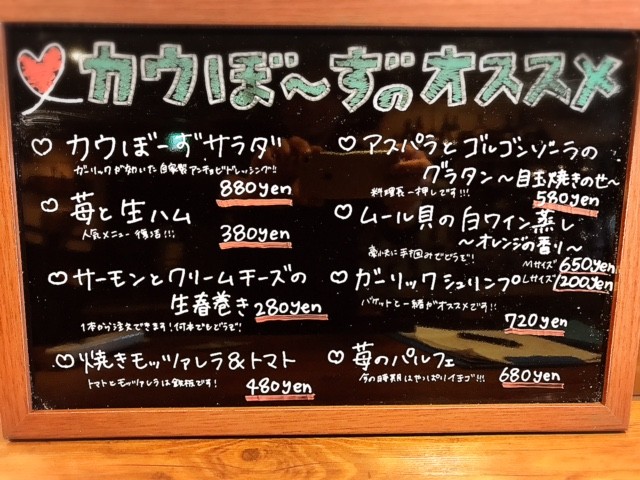 カウぼ〜ずのオススメ
♡ カウぼーずサラダ
ガーリックが効いた自家製アンチョビドレッシング!!
880yen
♡ 苺と生ハム
人気メニュー復活!!!
380yen
♡ サーモンとクリームチーズの
生春巻き 280yen
1本から注文できます!何本でもどうぞ!
♡ 焼きモッツァレラ&トマト
トマトとモッツァレラは鉄板です!
480yen
♡ アスパラとゴルゴンゾーラの
グラタン〜目玉焼きのせ〜
料理長一押しです!!!
580yen
♡ ムール貝の白ワイン蒸し
〜オレンジの香り〜
豪快に手掴みでどうぞ!
Mサイズ 650yen
Lサイズ 1200yen
♡ ガーリックシュリンプ
バケットと一緒がオススメです!!
720yen
♡ 苺のパルフェ
今の時期はやっぱりイチゴ!!!
680yen